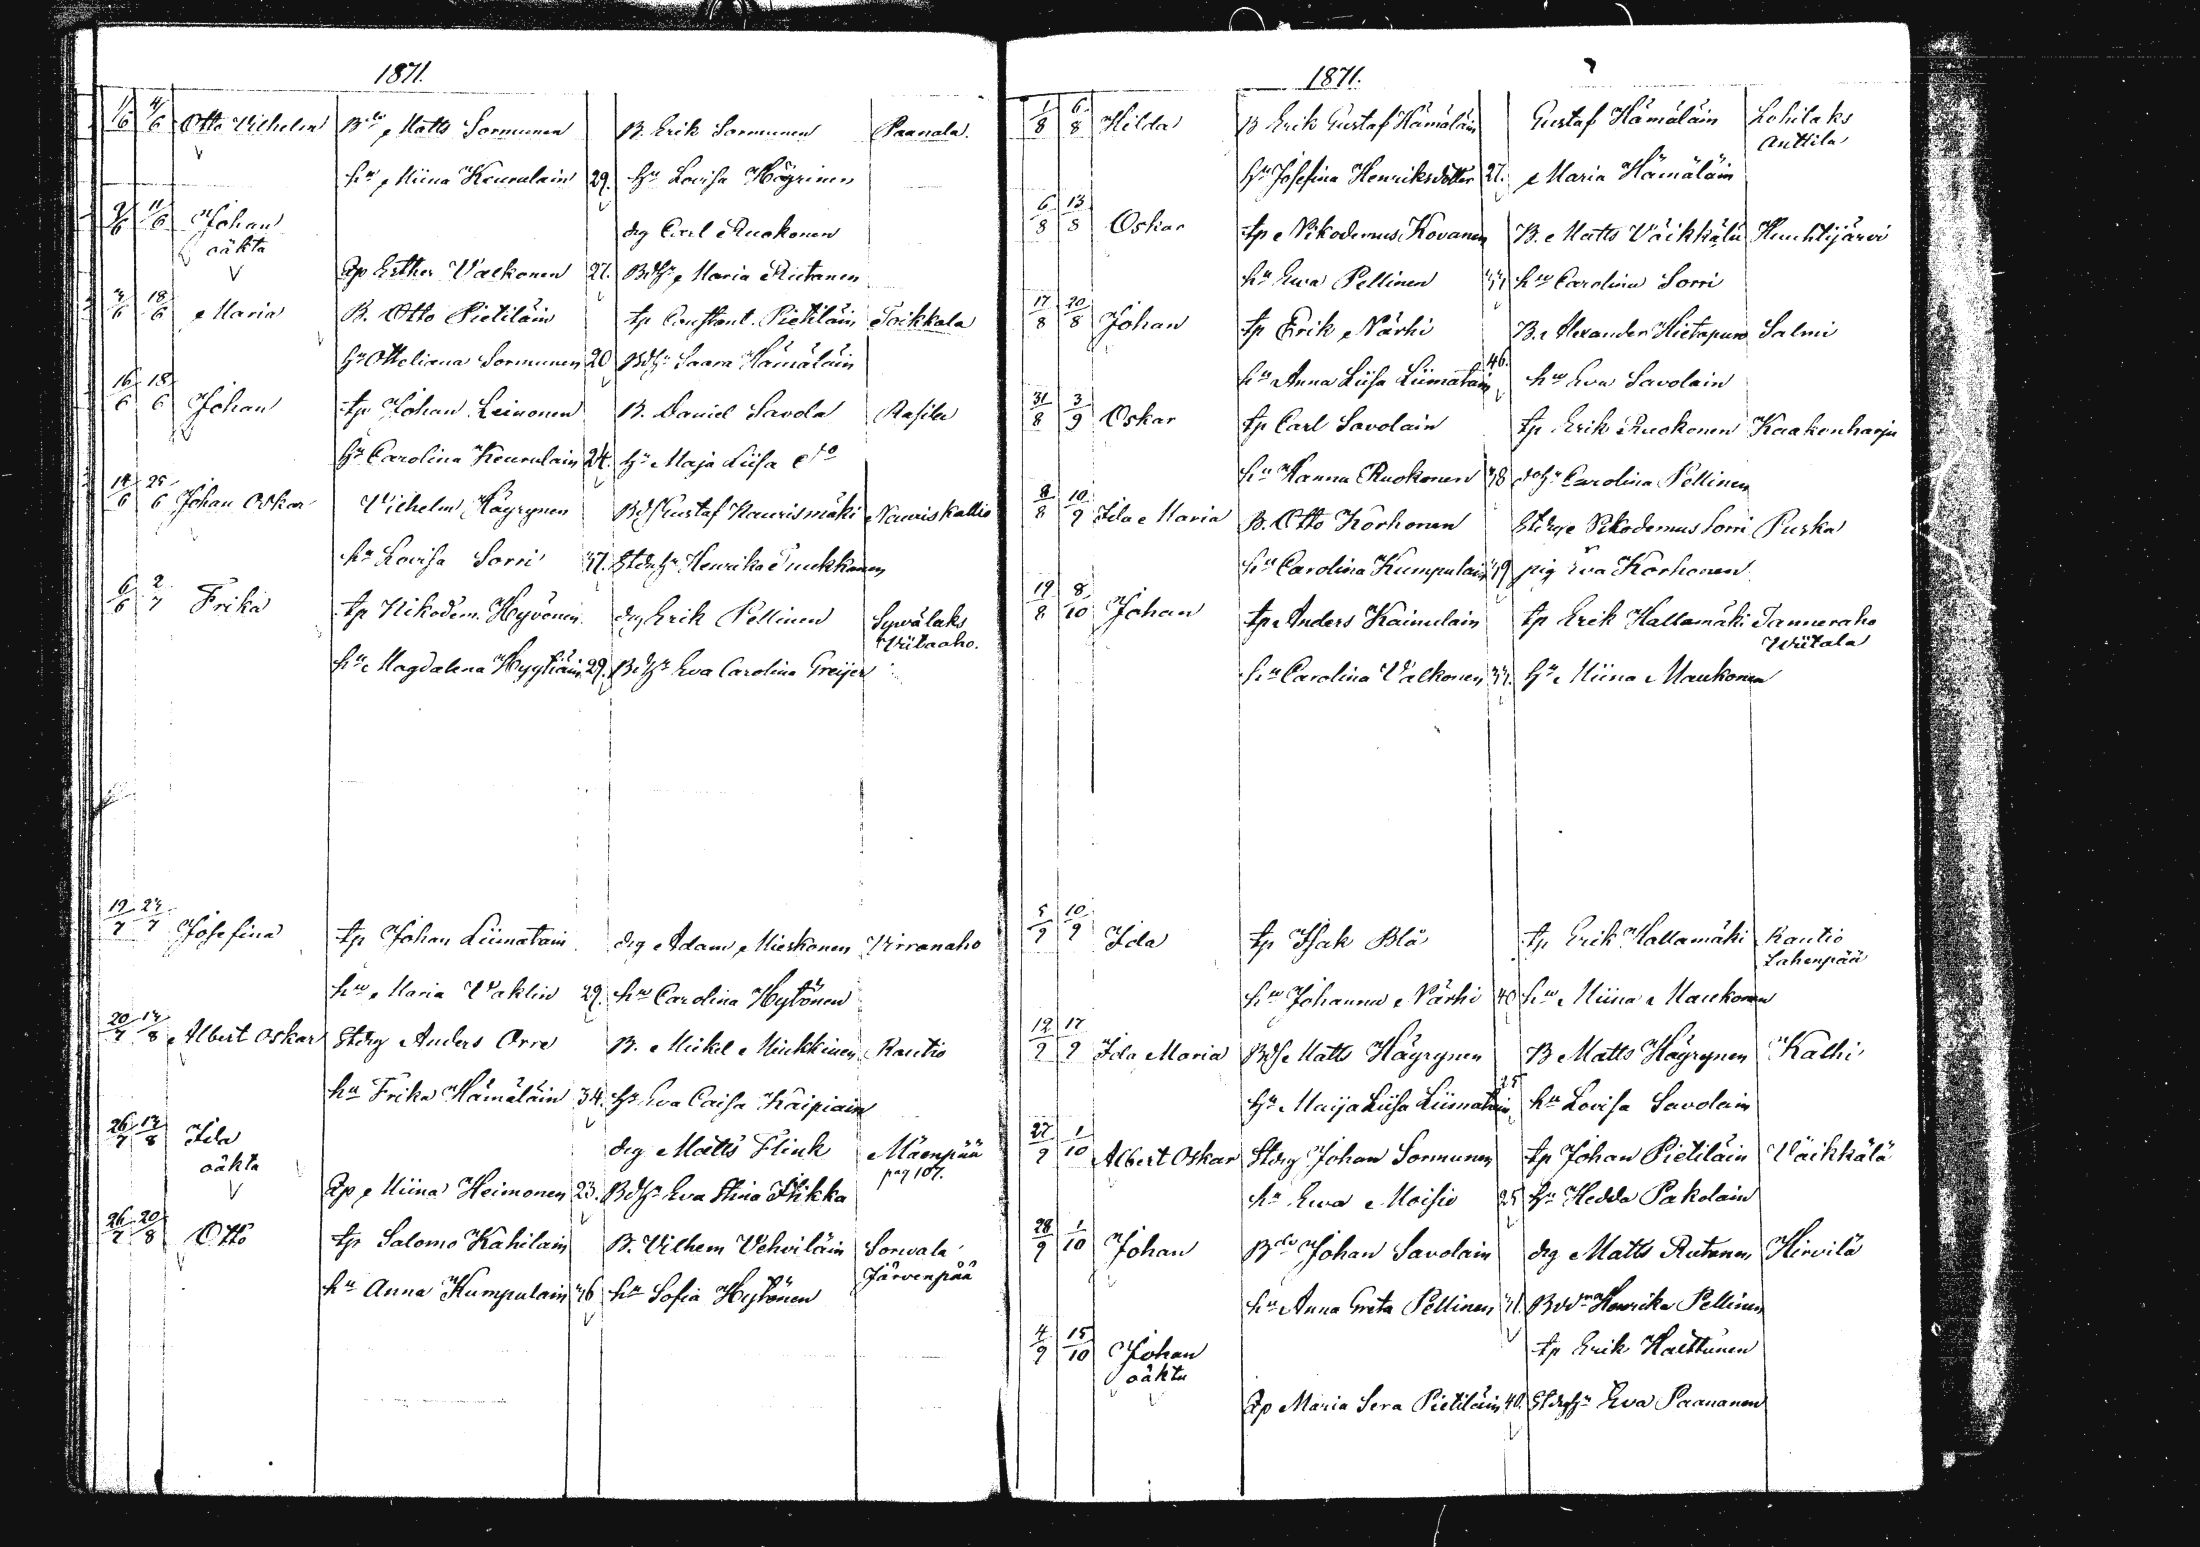 1871.
1/6 4/6 Otto Vilhelm Bdo Matts Sormunen B. Erik Sormunen Paanala.
hu Miina Keurulain 29. Hu Lovisa Häyrinen
9/6 11/6 Johan drg Carl Ruokonen
oäkta
Qp Esther Valkonen 27. Bdhu Maria Riutanen
7/6 18/6 Maria B. Otto Pietiläin tp Constant. Pietiläin Toikkala
Hu Otteliana Sormunen 20 Bdhu Saara Hämäläin
16/6 18/6 Johan tp Johan Leinonen B. Daniel Savola Rasila
Hu Carolina Keurulain 24. Hu Maja Liisa do
14/6 25/6 Johan Oskar Vilhelm Häyrynen Bds Gustaf Naurismäki Nauriskallio
hu Lovisa Sorri 37. Stdrhu Henrika Tuukkanen
6/6 2/7 Frika tp Nikodem. Hyvönen drg Erik Pellinen Syvälaks
Viitaaho.
hu Magdalena Hyytiäin 29. Bdhu Eva Carolina Greijer
19/7 23/7 Josefina tp Johan Liimatain drg Adam Mieskonen Virranaho
hu Maria Vaklin 29. hu Carolina Hytönen
20/7 13/8 Albert Oskar Stdrg Anders Orre B. Mikel Minkkinen Rautio
hu Frika Hämäläin 34. Hu Eva Caisa Kaipiain
26/7 13/8 Ida drg Matts Flink Mäenpää
oäkta pag 107.
Qp Miina Heimonen 23. Bdhu Eva Stina Flikka
26/7 20/8 Otto tp Salomo Kahilain B. Vilhem Vehviläin Sorvala
Järvenpää
hu Anna Kumpulain 36 hu Sofia Hytönen
1871.
1/8 6/8 Hilda B Erik Gustaf Hämäläin Gustaf Hämäläin Lohilaks
Anttila
Hu Josefina Henriksdotter 27. Maria Hämäläin
6/8 13/8 Oskar tp Nikodemus Kovanen B. Matts Väikkälä Huuhtijärvi
hu Ewa Pellinen hu Carolina Sorri
17/8 20/8 Johan tp Erik Närhi B. Alexander Hietapuro Salmi
hu Anna Liisa Liimatain 46. hu Eva Savolain
31/8 3/9 Oskar tp Carl Savolain tp Erik Ruokonen Kaakonharju
hu Hanna Ruokonen 38 Carolina Pellinen
8/8 10/9 Ida Maria B. Otto Korhonen Stdrg Nikodemus Sorri Purka
hu Carolina Kumpulain 39 pig Eva Korhonen
19/8 8/10 Johan tp Anders Kainulain tp Erik Hallamäki Tanneraho
Wiitala
hu Carolina Valkonen Hu Miina Maukonen
5/9 10/9 Ida tp Isak Blå tp Erik Hallamäki Rautio
Lahenpää
hu Johanna Närhi 40 hu Miina Maukonen
12/9 17/9 Ida Maria Bds Matts Häyrynen B Matts Häyrynen Kälhi
Hu Maija Liisa Liimatain 25 hu Lovisa Savolain
27/9 1/10 Albert Oskar Stdrg Johan Sormunen tp Johan Pietiläin Väikkälä
hu Ewa Moisio 25 Hu Hedda Pakolain
28/9 1/10 Johan Bdo Johan Savolain drg Matts Rutanen Hirvilä
hu Anna Greta Pellinen 31. Henrika Pellinen
4/9 15/10 Johan tp Erik Halttunen
oäkta
Qp Maria Sera Pietiläin 40. Stdrghu Eva Paananen